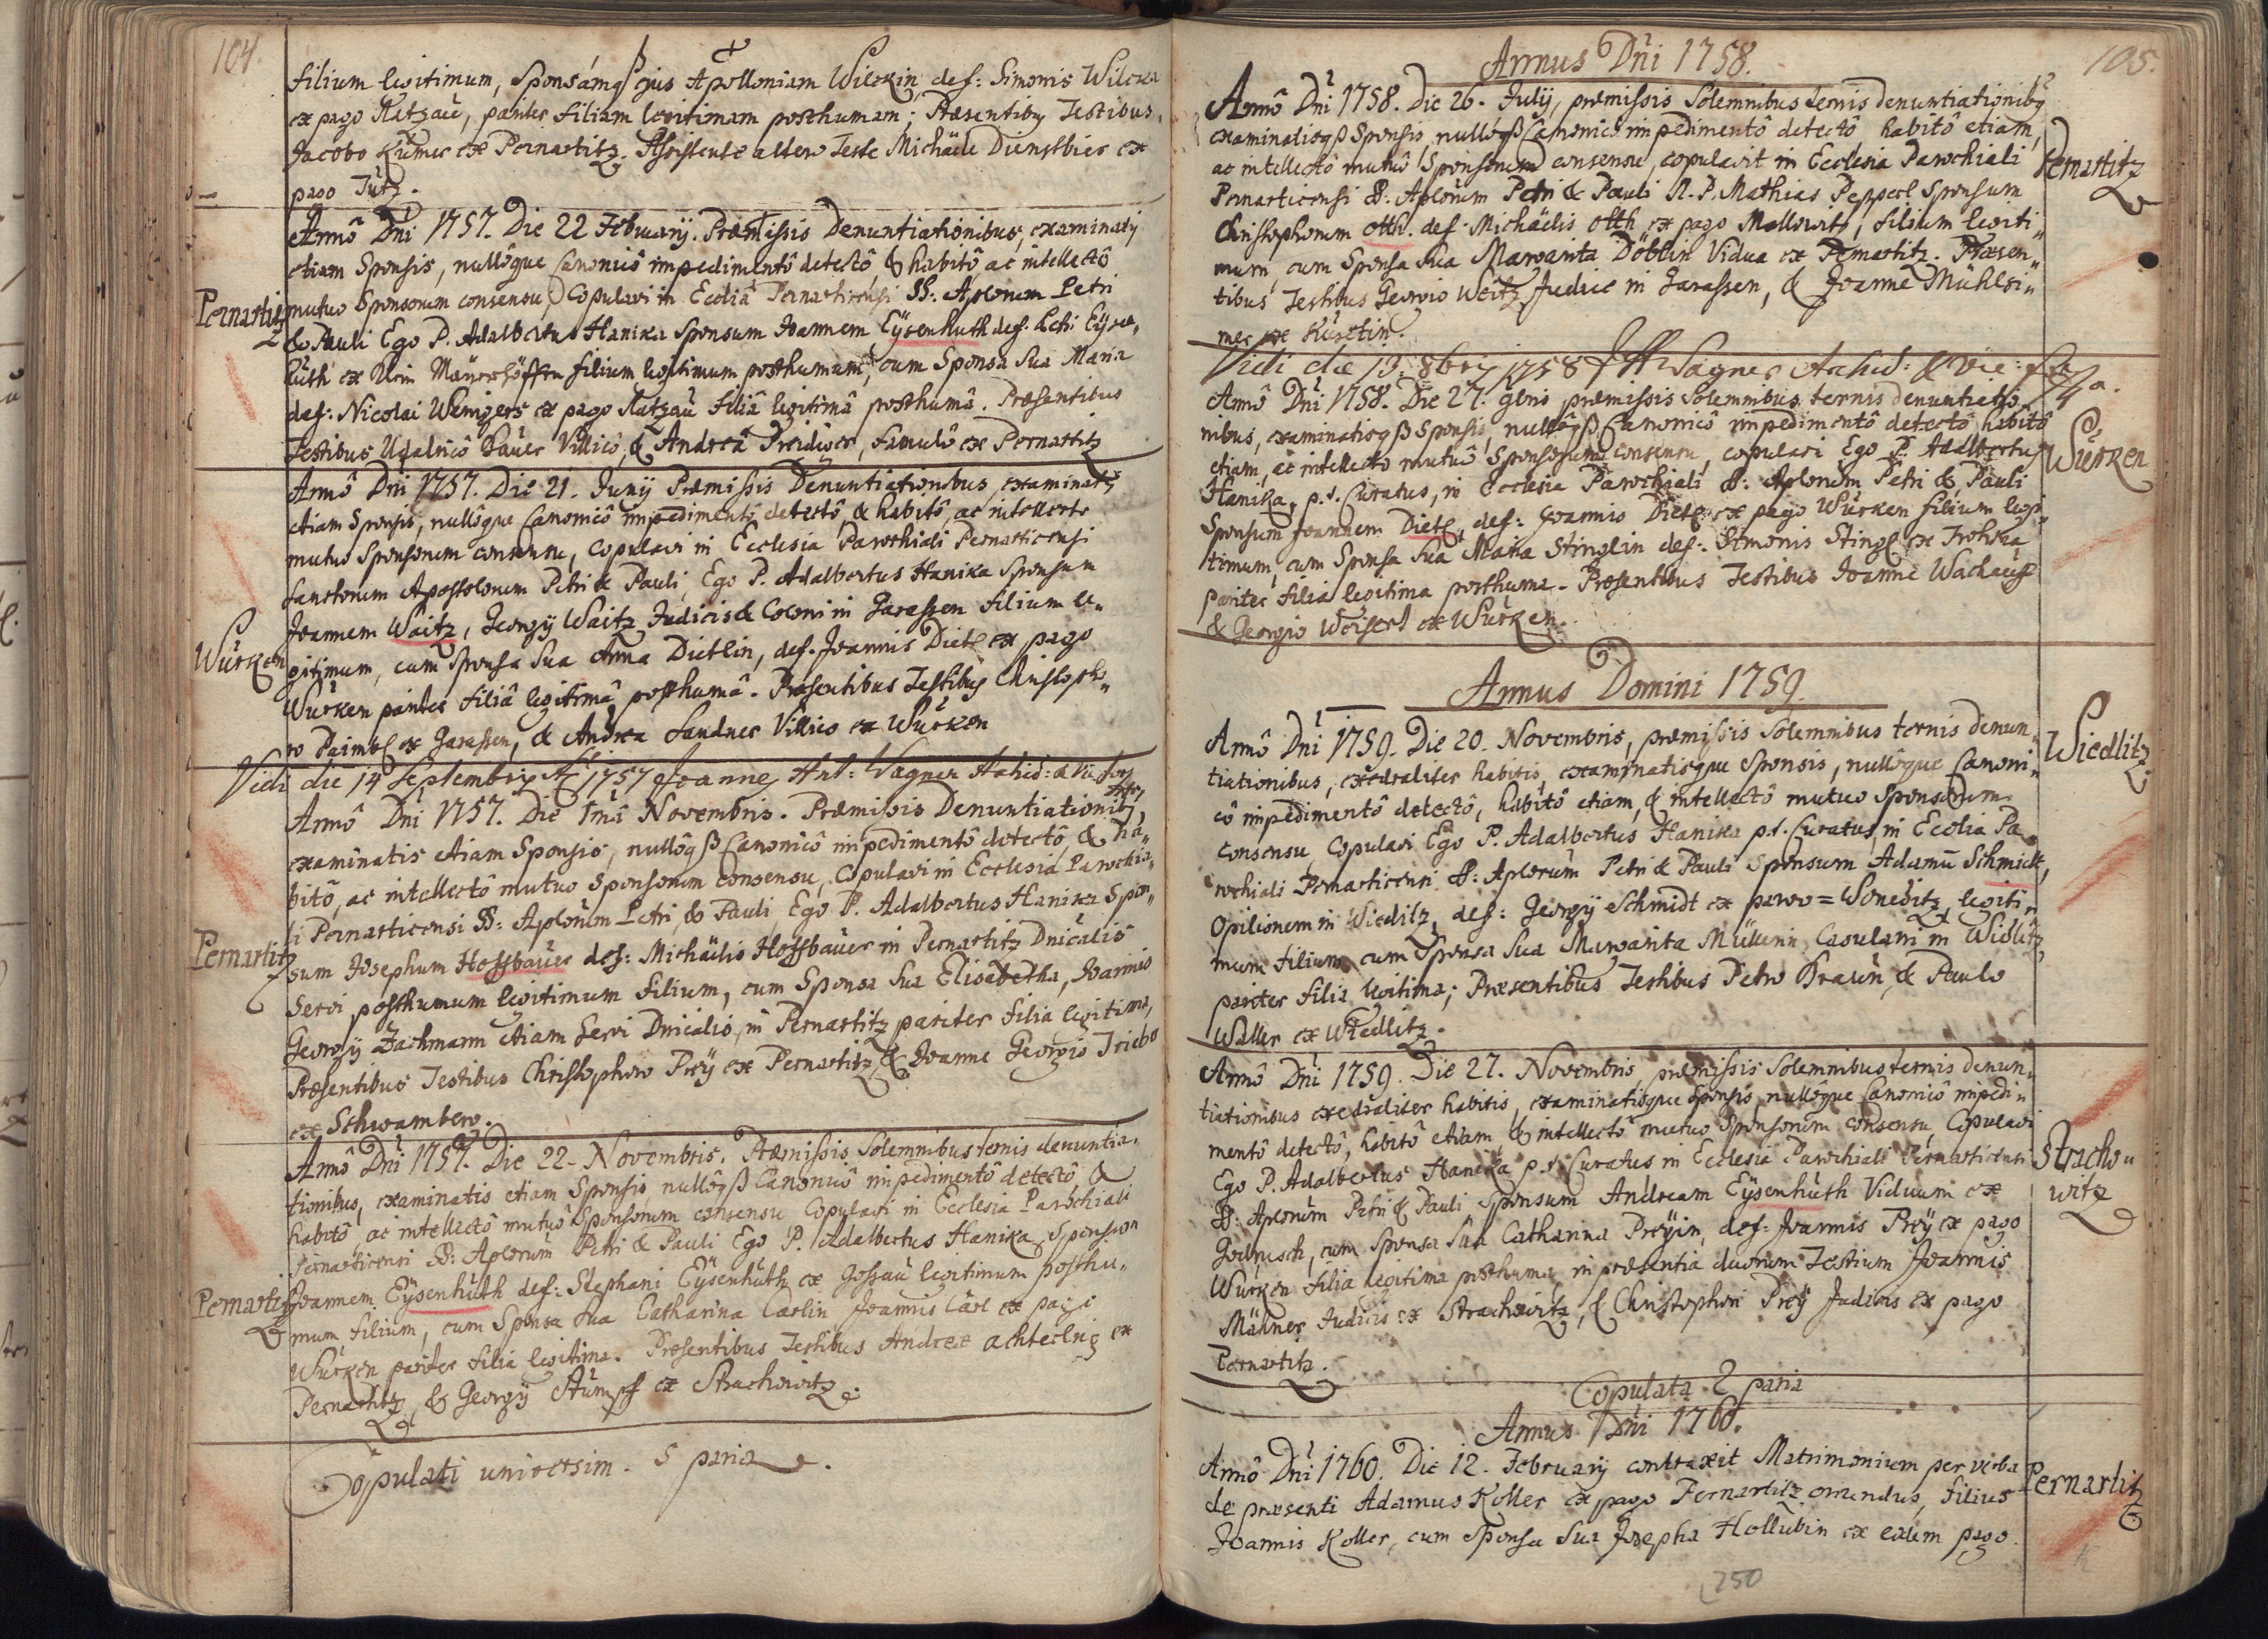 104.
filium legitimum, Sponsámqß ejus Apolloniam Wilckin, def: Simonis Wilcka
ex pago Katzau, pariter filiam legitimam posthumam; Præsentibq Testibus
Jacobo Kümer ex Pernartitz. Assistente altero Teste Michäele Dienstbier ex
pago Tütz.
Pernartitz
Annô Dni 1757. Die 22 Februarÿ. Præmissis Denuntiationibus, examinatis
etiam Sponsis, nullôque Canonicô impedimentô detectô, & habitô ac intellectô
mutuo Sponsorum consensu, Copulavi in Ecclîa Pernarticensi SS: Aplorum Petri
& Pauli Ego P. Adalbertus Hanika Sponsum Joannem Eÿsenhuth def: Petri Eÿsen„
huth ex Klein Mayerhöffen filium legitimum posthumum, cum Sponsa Sua Maria
def: Nicolai Wenigers ex pago Katzau filiâ legitimâ posthumâ. Præsentibus
Testibus Udalricô Bauer Villicô, & Andreâ Preidiger, famulô ex Pernartitz
Würken
Annô Dni 1757. Die 21. Junij Præmissis Denuntiationibus, examinatis
etiam Sponsis, nullôque Canonicô impedimentô detectô & habitô, ac intellecto
mutuo Sponsorum consensu, Copulavi in Ecclesia Parochiali Pernarticensi
Sanctorum Apostolorum Petri & Pauli, Ego P. Adalbertus Hanika Sponsum
Joannem Waitz, Georgÿ Waitz Judicis & Coloni in Garassen filium le„
gitimum, cum Sponsa Sua Anna Dietlin, def. Joannis Dietl ex pago
Würken pariter filiâ legitimâ posthumâ. Præsentibus Testibus Christopho„
ro Paimbl ex Garassen, & Andrea Landner Villico ex Würken
Vidi die 14 Septembris Ao 1757 Joannes Ant: Wagner Archid: & Vic: for
Pernartitz
Annô Dni 1757. Die 1mâ Novembris. Præmissis Denuntiationibq
examinatis etiam Sponsis, nullôqß Canonicô impedimentô detectô, & ha„
bitô, ac intellectô mutuo Sponsorum consensu, Copulavi in Ecclesia Parochia„
li Pernarticensi SS: Aplorum Petri, & Pauli Ego P. Adalbertus Hanika Spon„
sum Josephum Hoffbauer def: Michäelis Hoffbauer in Pernartitz Dnicalis
Servi posthumum legitimum filium, cum Sponsa Sua Elisabetha, Joannis
Georgÿ Zachmann etiam Servi Dnicalis, in Pernartitz pariter filia legitima,
Præsentibus Testibus Christophoro Preÿ ex Pernartitz & Joanne Georgio Triebe
ex Schwamberg.
Pernartitz
Annô Dni 1757. Die 22. Novembris. Præmissis Solemnibus ternis denuntia„
tionibus, examinatis etiam Sponsis, nullôqß Canonicô impedimentô detectô, &
habitô, ac intellectô mutuô Sponsorum consensu Copulavi in Ecclesia Parochiali
Pernarticensi SS: Aplorum Petri & Pauli Ego P. Adalbertus Hanika, Sponsum
Joannem Eÿsenhuth def: Stephani Eÿsenhuth ex Gossau legitimum posthu„
mum filium, cum Sponsa Sua Catharina Carlin Joannis Carl ex pago
Würken pariter filia legitima. Præsentibus Testibus Andreæ achtelnig ex
Pernartitz, & Georgÿ Stümpf ex Strachowitz.
Copulati universim. 5 paria.
105.
Annus Dni 1758.
Annô Dni 1758. Die 26. Julij, præmissis Solemnibus ternis denuntiationibq
examinatisqß Sponsis, nullôqß Canonicô impedimentô detectô habitô etiam,
ac intellectô mutuô Sponsorum consensu, copulavit in Ecclesia Parochiali
Pernartitz
Pernarticensi SS. Aplorum Petri & Pauli R. P. Mathias Pepperl Sponsum
Christophorum Otth. def. Michäelis Otth ex pago Mallowitz, filium legiti„
mum, cum Sponsa Sua Margarita Döblin Vidua ex Pernartitz. Præsen„
tibus Testibus Georgio Weitz Judice in Garassen, & Joanne Mühlsi„
mer ex Kürtin.
Vidi die 19. 8bris 1758 Wagner Archid: & Vic: for
Annô Dni 1758. Die 27. 9bris præmissis Solemnibus ternis denuntiatio„
nibus, examinatisqß Sponsis, nullôqß Canonicô impedimentô detectô habitô
etiam, ac intellecto mutuô Sponsorum consensu, copulavi Ego P. Adalbertus
Würken
Hanika, p.t. Curatus, in Ecclesia Parochiali SS: Aplorum Petri & Pauli
Sponsum Joannem Dietl, def: Joannis Dietl ex pago Würken filium legi„
timum, cum Sponsa Sua Maria Stinglin def: Simonis Stingl ex Trohska
pariter filia legitima posthuma. Præsentibus Testibus Joanne Wachauf
& Georgio Weisert ex Würken.
Annus Domini 1759.
Annô Dni 1759. Die 20. Novembris, præmissis Solemnibus ternis denun„
Wiedlitz
tiationibus, exedraliter habitis, examinatisque Sponsis, nullôque Canoni„
cô impedimentô detectô, habitô etiam, & intellectô mutuo Sponsorum
consensu, Copulavi Ego P. Adalbertus Hanika p.t. Curatus, in Ecclîa Pa„
rochiali Pernarticensi SS: Aplorum Petri & Pauli Sponsum Adamū Schmidt,
Opilionem in Wiedlitz, def: Georgÿ Schmidt ex parvo = Woneditz legiti„
mum filium, cum Sponsa Sua Margarita Müllerin, Casulani in Widlitz,
pariter filia legitima; Præsentibus Testibus Petro Braun, & Paulo
Waller ex Wiedlitz.
Annô Dni 1759. Die 27. Novembris præmissis Solemnibus ternis denun„
tiationibus exedraliter habitis, examinatisque Sponsis nullôque Canonicô impedi„
mentô detectô, habitô etiam & intellectô mutuo Sponsorum consensu, Copulavi
Stracho„
witz
Ego P. Adalbertus Hanika p.t. Curatus in Ecclesia Parochiali Pernarticensi
SS: Aplorum Petri & Pauli Sponsum Andream Eÿsenhuth Viduum ex
Godrusch, cum Sponsa Sua Catharina Preÿin, def: Joannis Preÿ ex pago
Würken filia legitima posthuma, in præsentia duorum Testium Joannis
Mähner Judicis ex Strachowitz, & Christophori Preÿ Judicis ex pago
Pernartitz.
Copulata 2 paria
Annus Dni 1760.
Annô Dni 1760. Die 12. Februarÿ contraxit Matrimonium per verba
Pernartitz
de præsenti Adamus Koller ex pago Pernartitz oriundus, filius
Joannis Koller, cum Sponsa Sua Josepha Hollubin ex eadem pago
250